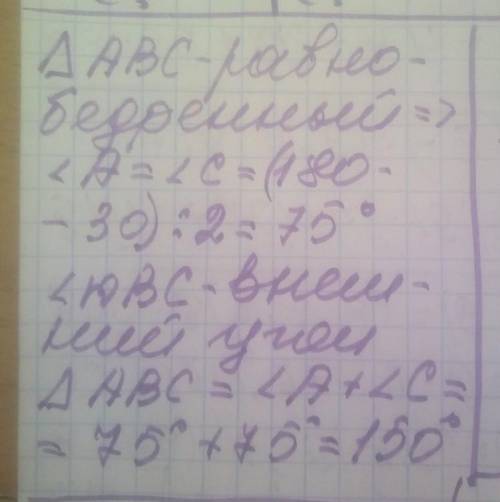 ΔABC-равно-
бедренный =>
<A=<C=(180-
-30):2=75°
<ABC-внеш-
ний угол
ΔABC=<A+<C=
=75°+75°=150°